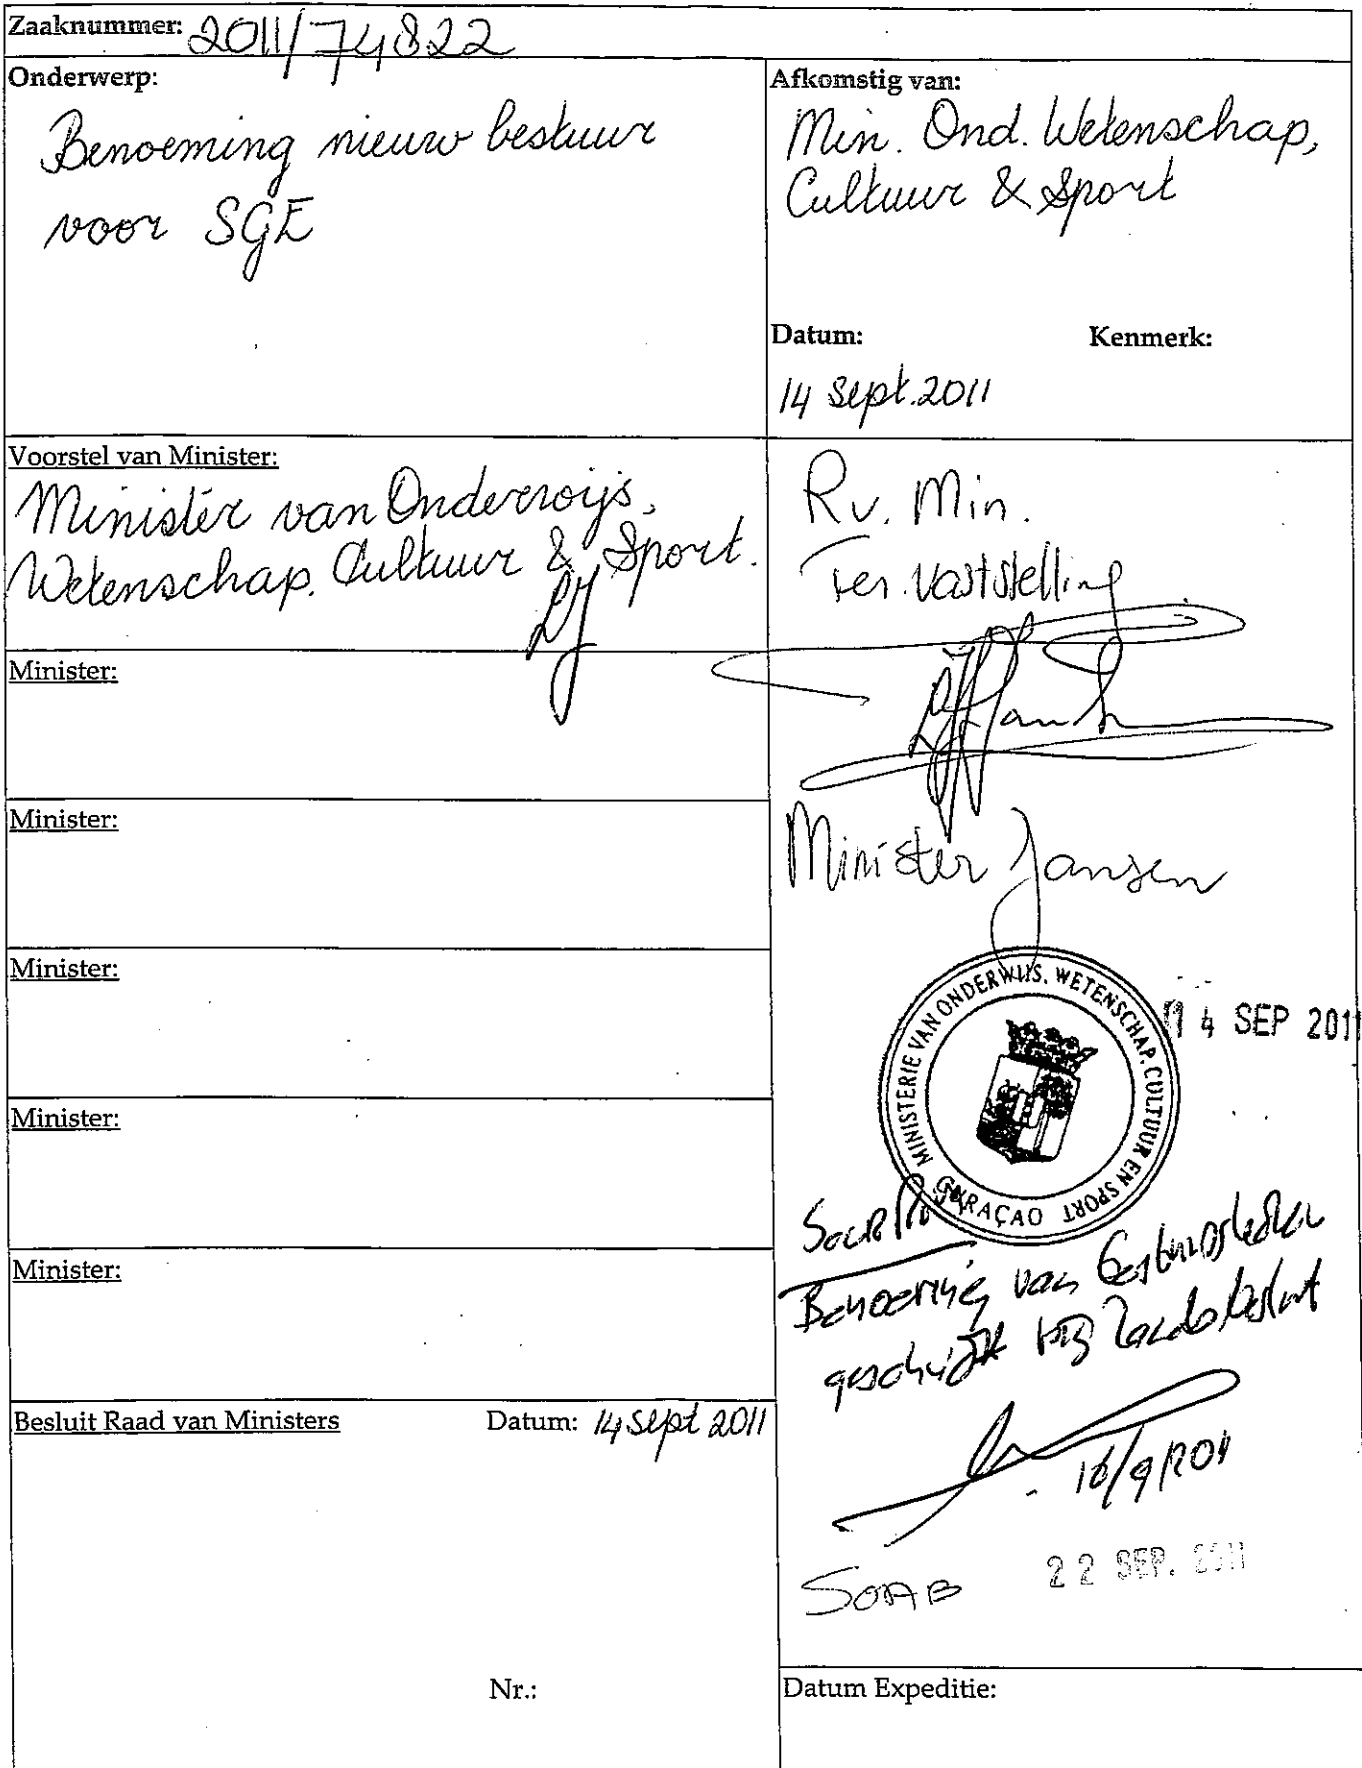 Zaaknummer: 2011/74822
Onderwerp:
Benoeming nieuw bestuur
voor SGE
Afkomstig van:
Min. Ond. Wetenschap,
Cultuur & Sport
Datum: Kenmerk:
14 sept. 2011
Voorstel van Minister:
Minister van Onderwijs,
Wetenschap, Cultuur & Sport.
Rv. Min.
Ter vaststelling
Minister:
Minister:
Minister Jansen
Minister:
MINISTERIE VAN ONDERWIJS, WETENSCHAP, CULTUUR EN SPORT
CURAÇAO
14 SEP 2011
Minister:
Minister:
Benoeming van bestuursleden
geschiedt bij Landsbesluit
Besluit Raad van Ministers Datum: 14 sept 2011
22 SEP. 2011
SOAB
Nr.:
Datum Expeditie: